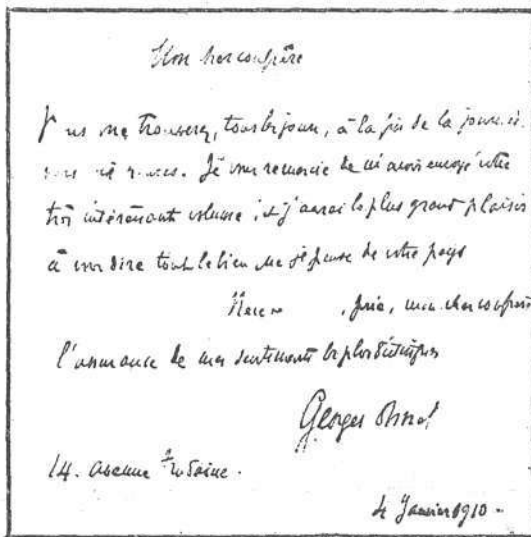 Mon cher confrère
me trouverez, tous les jours, à la fin de la journée
Je vous remercie de m'avoir envoyé votre
très intéressant volume, et j'aurai le plus grand plaisir
à vous dire tout le bien que je pense de votre pays
mon cher confrère
l'assurance de mes sentiments les plus distingués
Georges Ohnet
14. avenue Trudaine.
4 Janvier 1910.